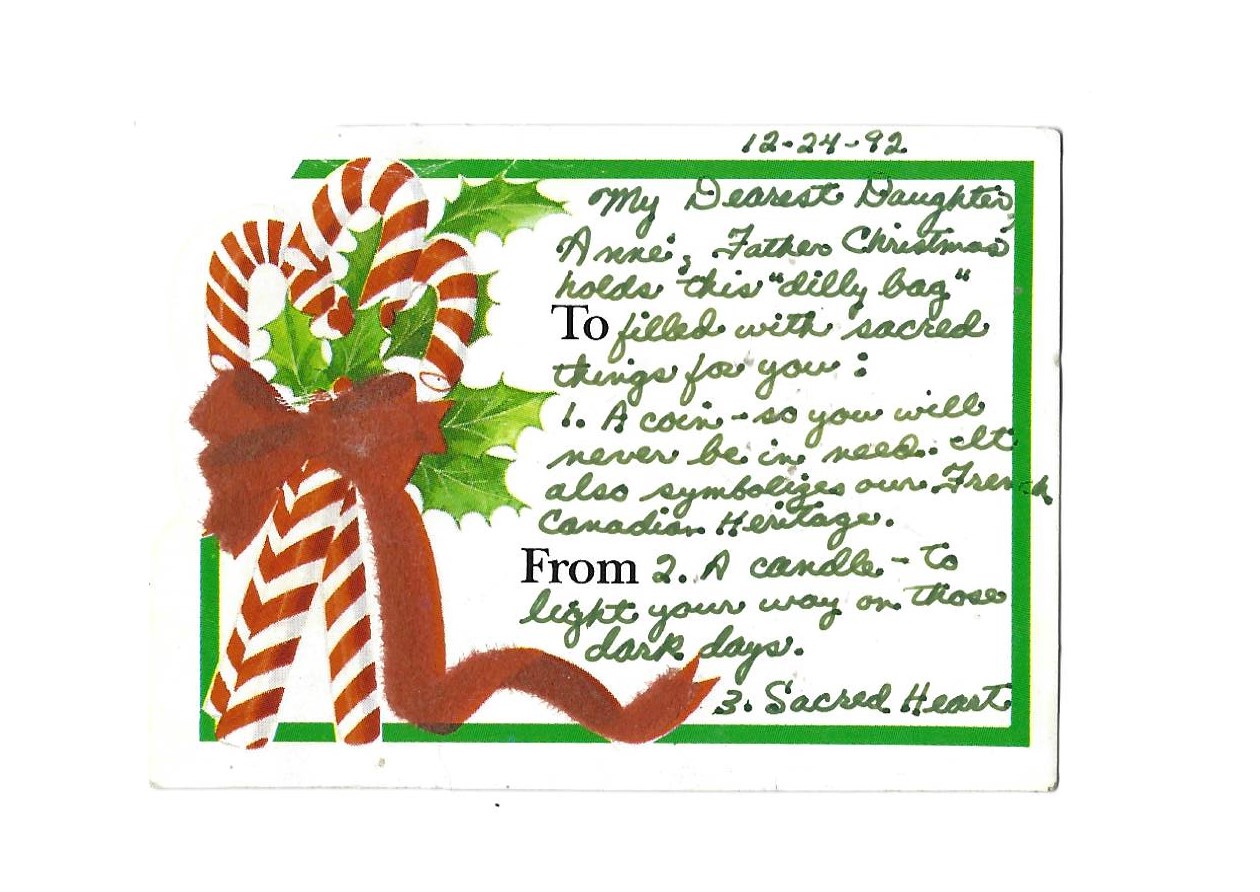 12-24-92
My Dearest Daughter,
Anne', Father Christmas
holds this "dilly bag"
To filled with sacred
things for you:
1. A coin - so you will
never be in need. It
also symbolizes our French
Canadian Heritage.
From 2. A candle - to
light your way on those
dark days.
3. Sacred Heart